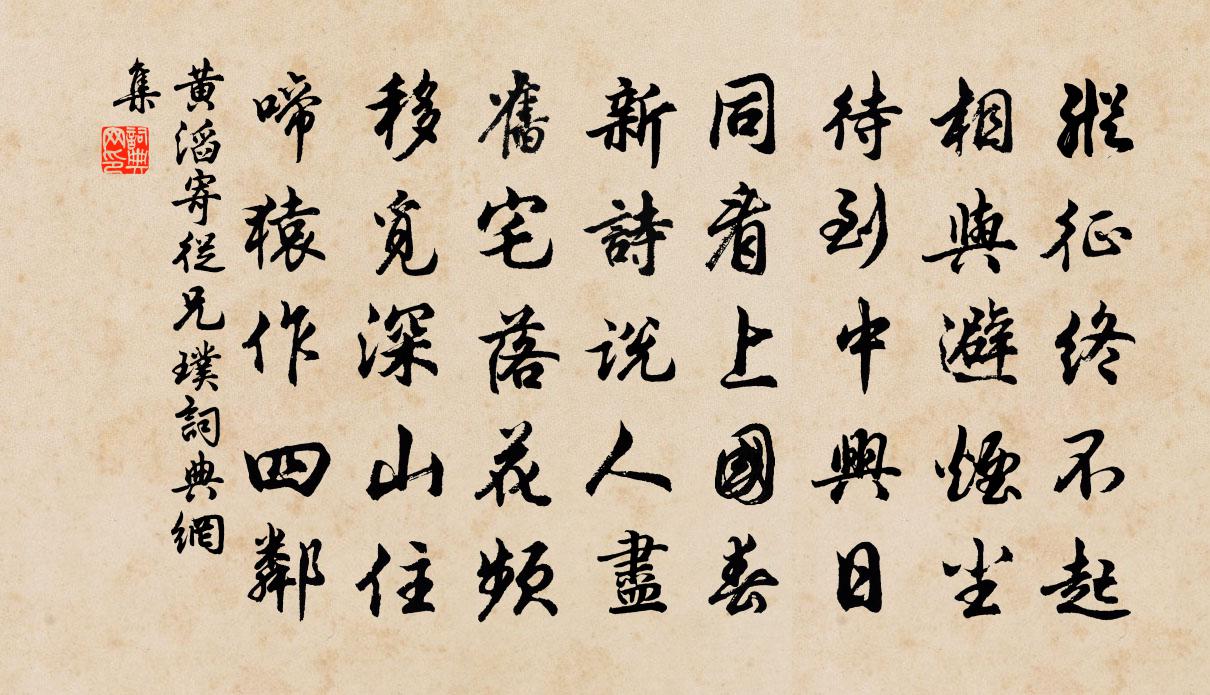 縱征終不起
相與避煙塵
待到中興日
同看上國春
新詩說人盡
舊宅落花頻
移覓深山住
啼猿作四鄰
黃滔寄從兄璞詞典網
集
詞典
网印